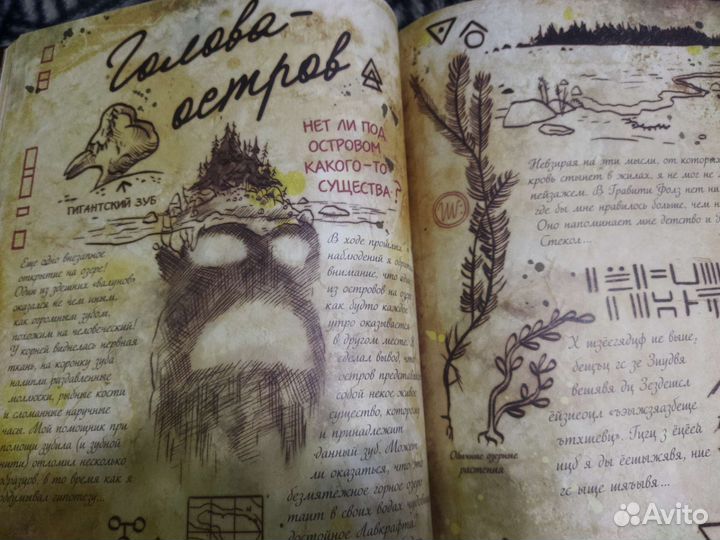 Голова-
остров
ГИГАНТСКИЙ ЗУБ
НЕТ ЛИ ПОД
ОСТРОВОМ
КАКОГО-ТО
СУЩЕСТВА?
Еще одно внезапное
открытие на озере!
Один из здешних «валунов»
оказался не чем иным,
как огромным зубом,
похожим на человеческий!
У корней виднелась нервная
ткань, на коронку зуба
налипли раздавленные
моллюски, рыбные кости
и сломанные наручные
часы. Мой помощник при
помощи зубила (и зубной
нити) отломил несколько
образцов, в то время как я
обдумывал гипотезу...
В ходе
наблюдений я
внимание, что
из островов на
как будто каждое
утро оказывается
в другом месте. Я
сделал вывод, что
остров
собой некое живое
существо, которому
и принадлежит
данный зуб. Может
ли оказаться, что это
безмятежное горное озеро
таит в своих водах
достойное Лавкрафта
Невзирая на эти мысли, от которых
кровь стынет в жилах, я не мог не
пейзажем. В Гравити Фолз нет
где бы мне нравилось больше, чем
Оно напоминает мне детство и
Стекол...
Обычные озерные
растения
Х
бещъц гс зе Зиудвя
вешявя дц Зездешсл
«ъэыжзяазбеще
Гцгц з ёцёей
ицб я ды ёешыжявя, ние
гс ыще шяъывя...
Avito